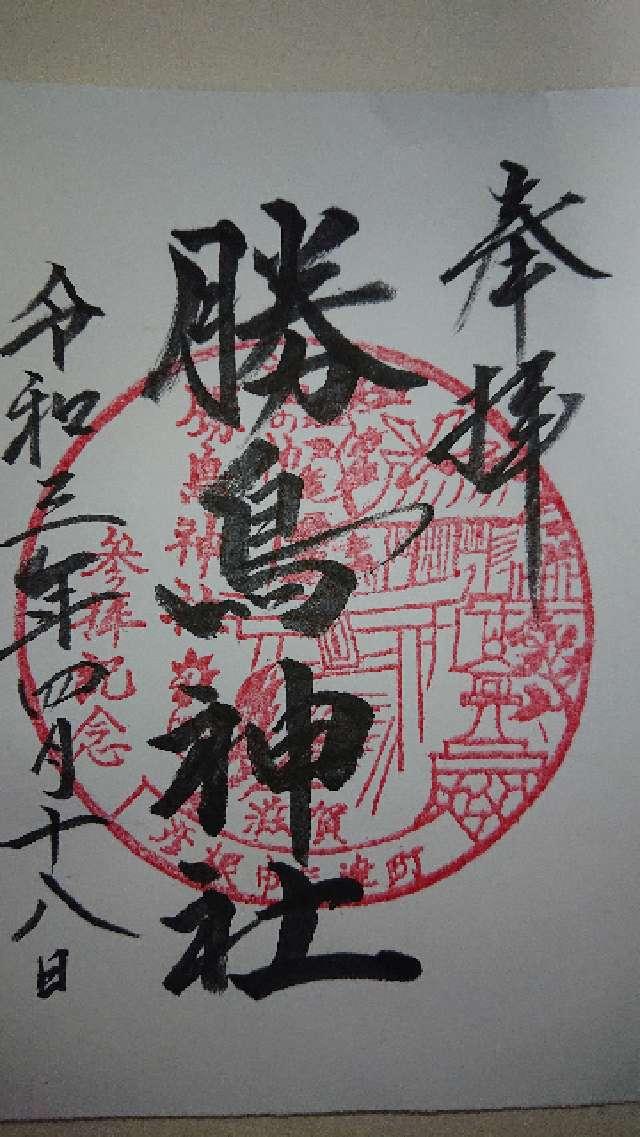 奉拝
勝鳥神社
令和三年四月十八日
勝鳥神社
参拝記念
滋賀
彦根市三津町